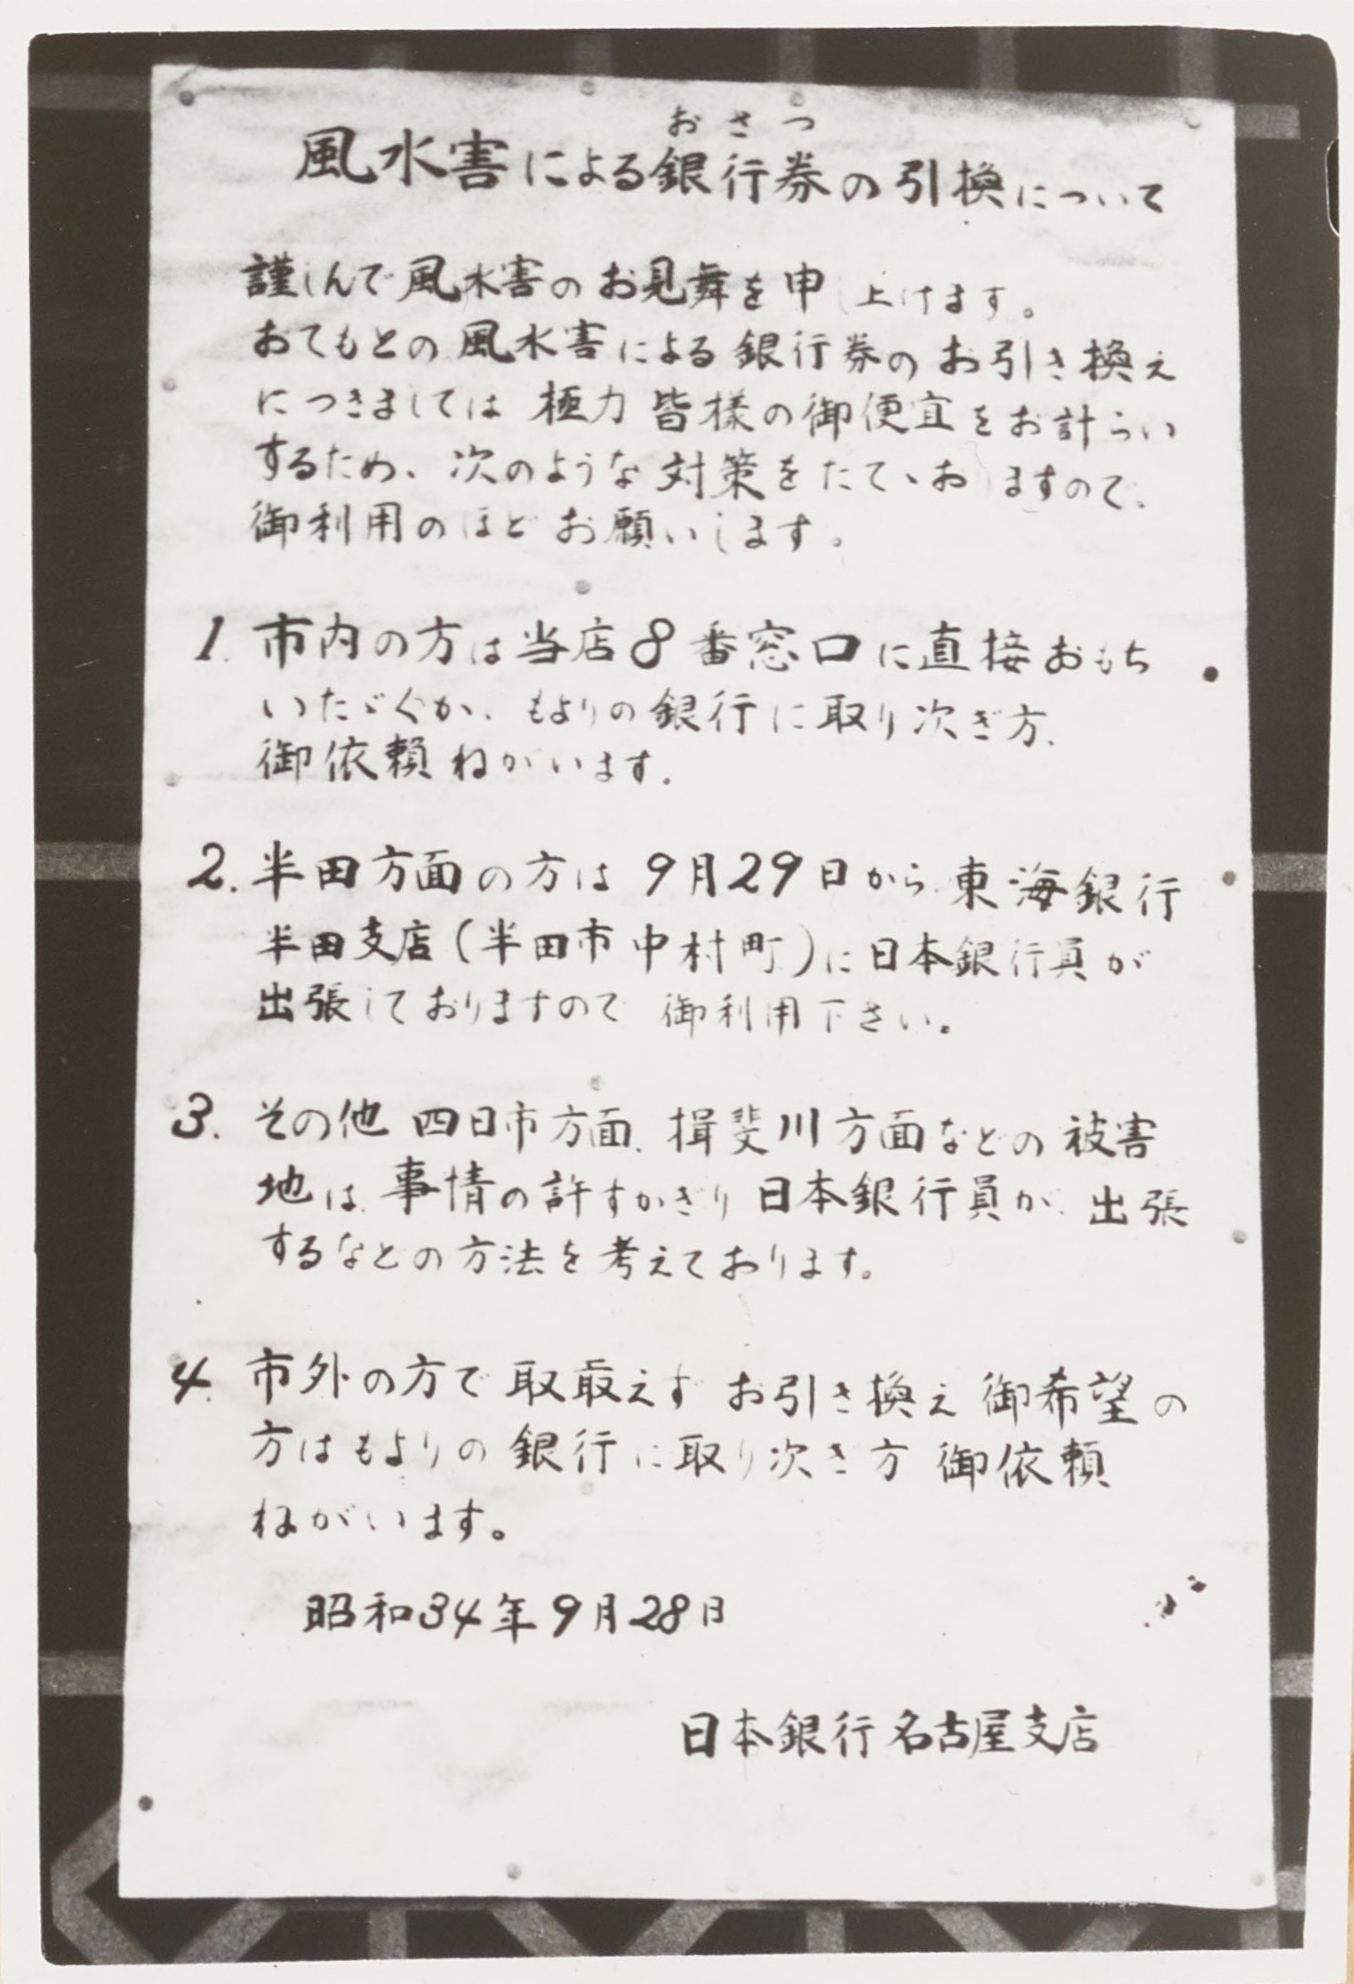 おさつ
風水害による銀行券の引換について
謹しんで風水害のお見舞を申し上げます。
おてもとの風水害による銀行券のお引き換え
につきましては極力皆様の御便宜をお計らい
するため、次のような対策をたてゝおりますので、
御利用のほどお願いします。
1. 市内の方は当店8番窓口に直接おもち
いたゞくか、もよりの銀行に取り次ぎ方、
御依頼ねがいます。
2. 半田方面の方は9月29日から東海銀行
半田支店(半田市中村町)に日本銀行員が
出張しておりますので御利用下さい。
3. その他四日市方面、揖斐川方面などの被害
地は、事情の許すかぎり日本銀行員が、出張
するなどの方法を考えております。
4. 市外の方で取敢えず お引き換え御希望の
方はもよりの銀行に取り次ぎ方 御依頼
ねがいます。
昭和34年9月28日
日本銀行名古屋支店